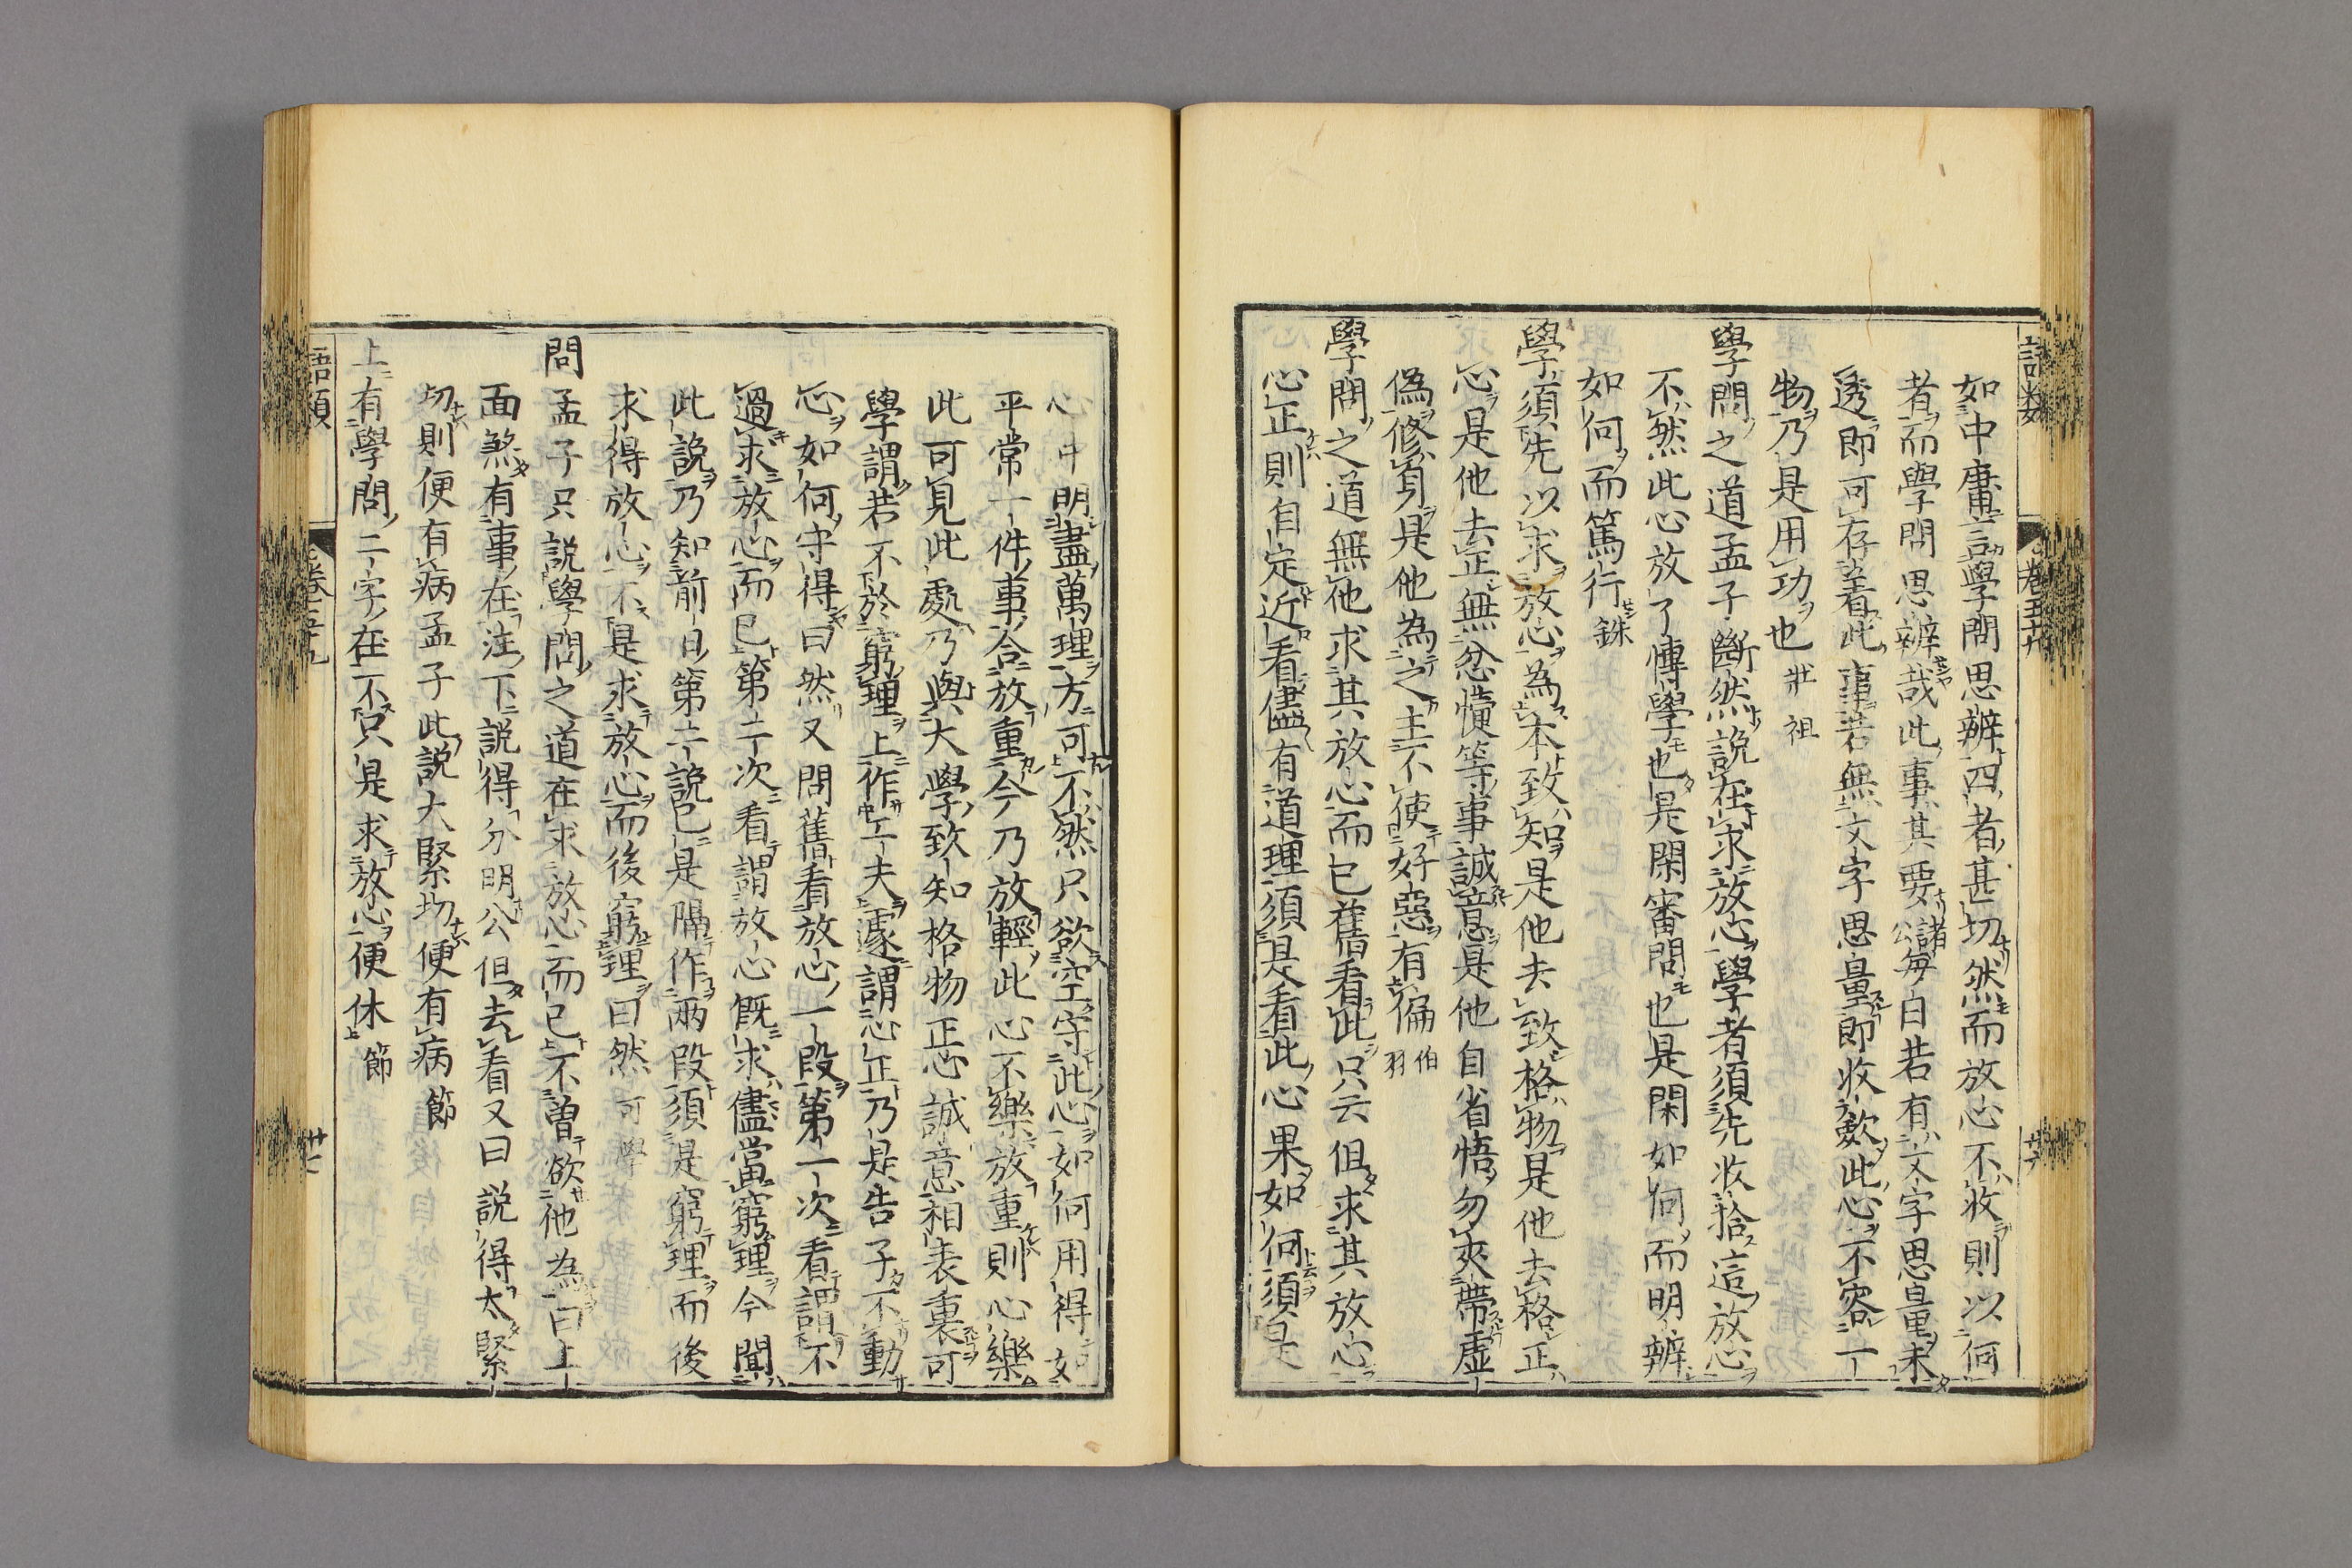 語類
卷五十九
如中庸言學問思辨四者甚切然而放心不收則以何
者而學問思辨哉此事甚要諸公每日若有文字思量未
透即可存着此事若無文字思量即收斂此心不容一
物乃是用功也壯祖
學問之道孟子斷然說在求放心學者須先收拾這放心
不然此心放了博學也是閑審問也是閑如何而明辨
如何而篤行銖
學須先以求放心為本致知是他去致格物是他去格正
心是他去正無忿懥等事誠意是他自省悟勿夾帶虛
偽修身是他為之主不使好惡有偏伯羽
學問之道無他求其放心而已舊看此只云但求其放心
心正則自定近看儘有道理須是看此心果如何須是
心中明盡萬理方可不然只欲空守此心如何用得如
平常一件事合放重今乃放輕此心不樂放重則心樂
此可見此處乃與大學致知格物正心誠意相表裏可
學謂若不於窮理上作工夫遽謂心正乃是告子不動
心如何守得曰然又問舊看放心一段第一次看謂不
過求放心而已第二次看謂放心既求儘當窮理今聞
此說乃知前日第二說已是隔作兩段須是窮理而後
求得放心不是求放心而後窮理曰然可學
問孟子只說學問之道在求放心而已不曾欲他為曰上
面煞有事在注下說得分明公但去看又曰說得太緊
切則便有病孟子此說太緊切便有病節
上有學問二字在不只是求放心便休節
語類
卷五十九
廿七